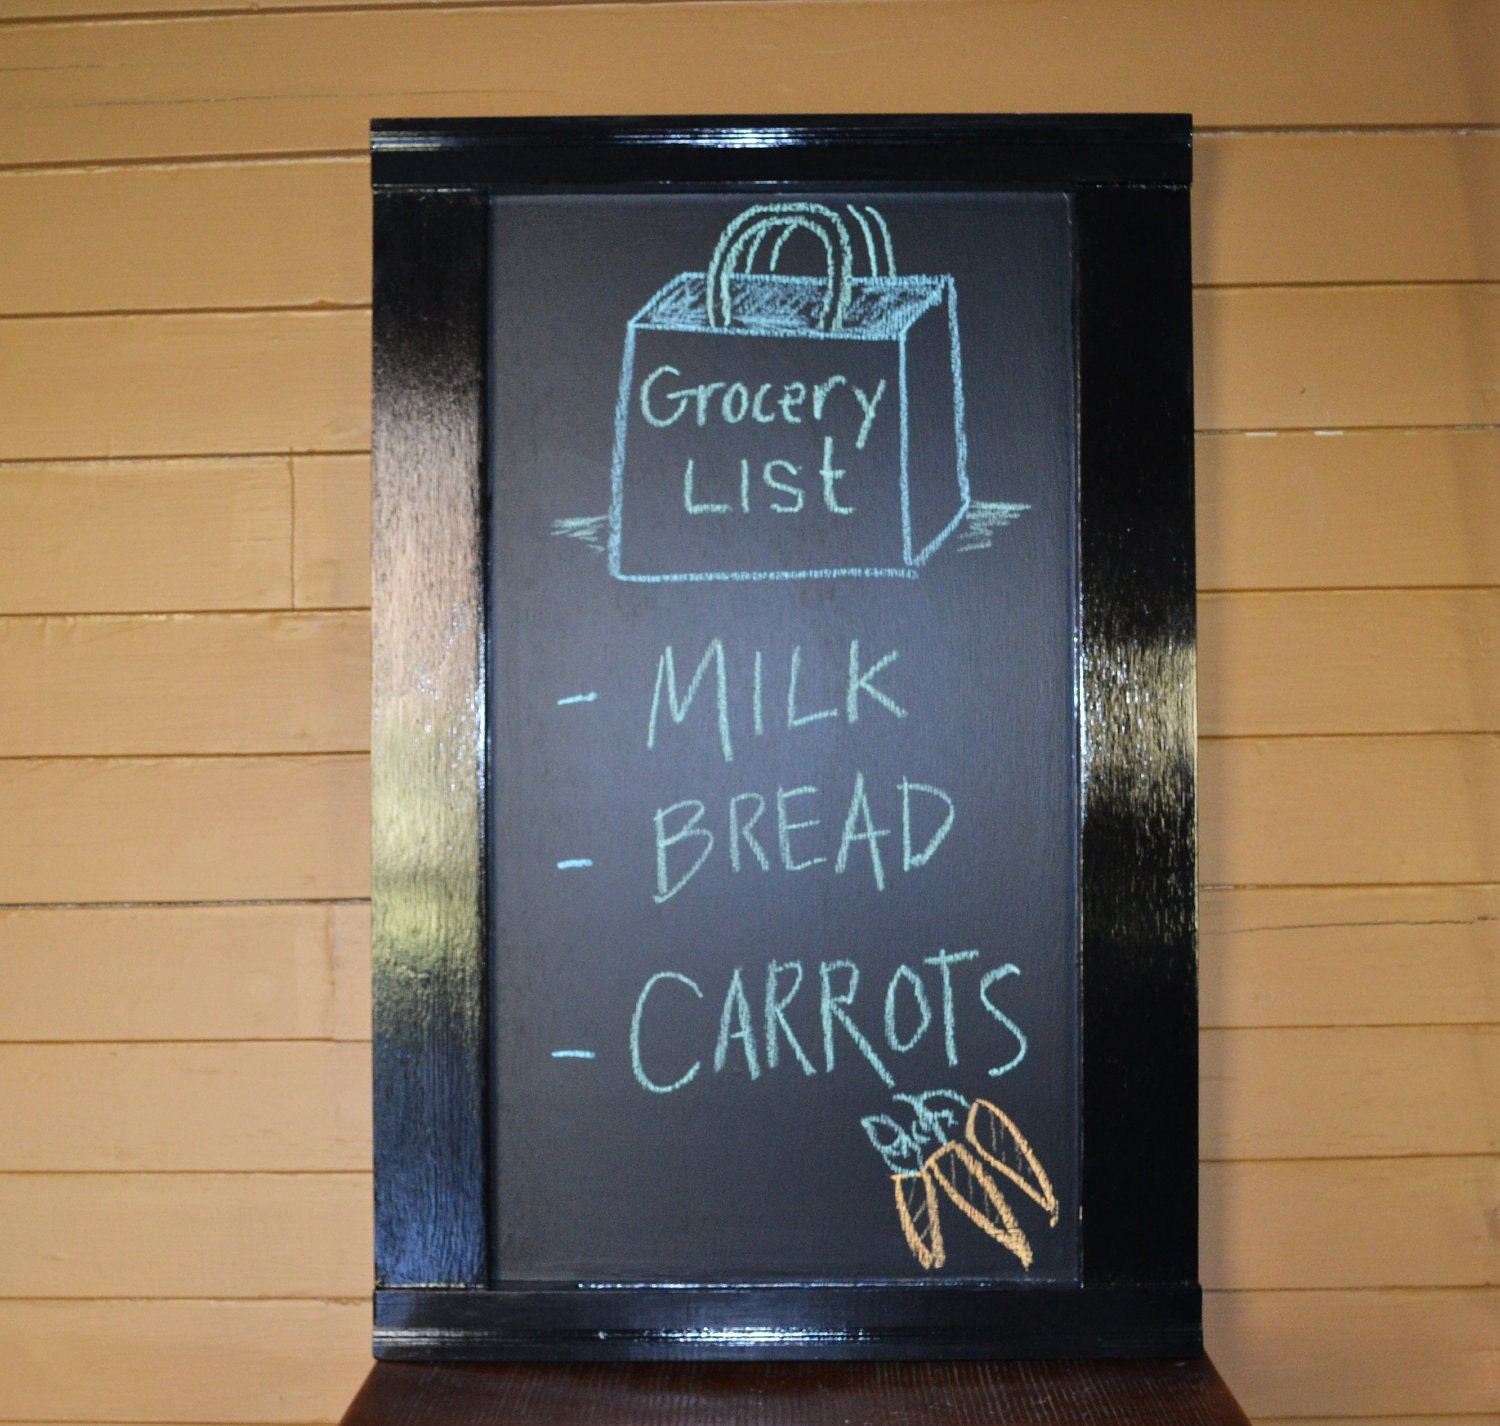 Grocery
LISt
- MILK
- BREAD
- CARROTS